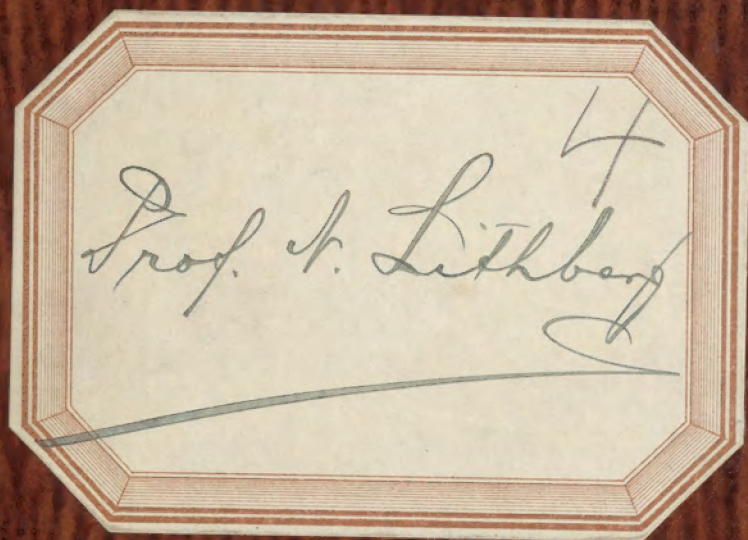 4
Prof. N. Lithberg